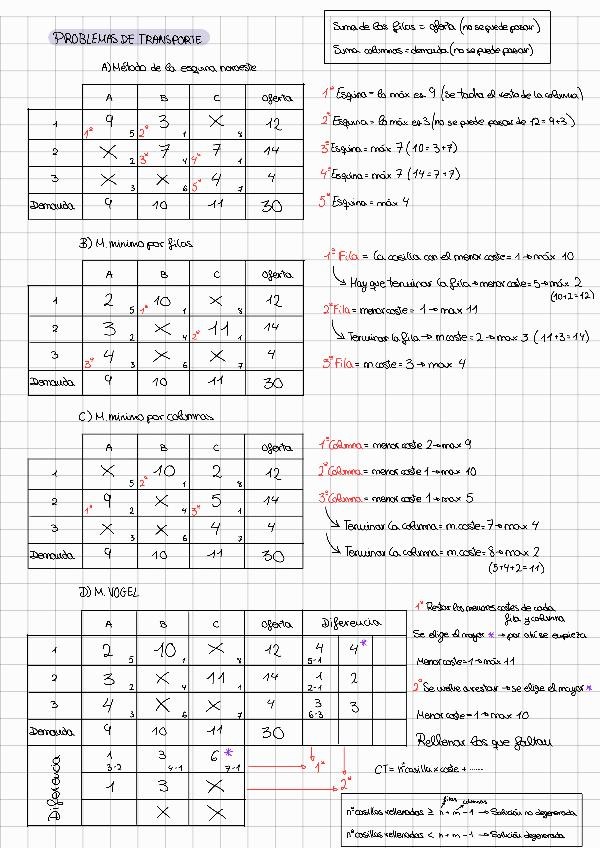 PROBLEMAS DE TRANSPORTE
Suma de las filas = oferta (no se puede pasar)
Suma columnas = demanda (no se puede pasar)
A) Método de la esquina noroeste
A B C Oferta
1 9 5 3 1 X 8 12
1ª 2ª
2 X 2 7 4 7 1 14
3ª 4ª
3 X 3 X 6 4 7 4
5ª
Demanda 9 10 11 30
1ª Esquina = lo máx es 9 (se tacha el resto de la columna)
2ª Esquina = lo máx es 3 (no se puede pasar de 12 = 9+3)
3ª Esquina = máx 7 (10 = 3+7)
4ª Esquina = máx 7 (14 = 7+7)
5ª Esquina = máx 4
B) M. mínimo por filas
A B C Oferta
1 2 5 10 1 X 8 12
1ª
2 3 2 X 4 11 1 14
2ª
3 4 3 X 6 X 7 4
3ª
Demanda 9 10 11 30
1ª Fila = la casilla con el menor coste = 1 → máx 10
Hay que terminar la fila → menor coste = 5 → máx 2
(10+2 = 12)
2ª Fila = menor coste = 1 → max 11
Terminar la fila → m.coste = 2 → max 3 (11+3 = 14)
3ª Fila = m.coste = 3 → max 4
C) M. mínimo por columnas
A B C Oferta
1 X 5 10 1 2 8 12
2ª
2 9 2 X 4 5 1 14
1ª 3ª
3 X 3 X 6 4 7 4
Demanda 9 10 11 30
1ª Columna = menor coste 2 → max 9
2ª Columna = menor coste 1 → max 10
3ª Columna = menor coste 1 → max 5
Terminar la columna = m.coste = 7 → max 4
Terminar la columna = m.coste = 8 → max 2
(5+4+2 = 11)
D) M. VOGEL
A B C Oferta Diferencia
1 2 5 10 1 X 8 12 4 5-1 4*
2 3 2 X 4 11 1 14 1 2-1 2
3 4 3 X 6 X 7 4 3 6-3 3
Demanda 9 10 11 30
Diferencia
1 3-2 3 4-1 6* 7-1
1ª
1 3 X
2ª
X X
1ª Restar los menores costes de cada
fila y columna
Se elige el mayor * → por ahí se empieza
Menor coste = 1 → máx 11
2ª Se vuelve a restar → se elige el mayor *
Menor coste = 1 → max 10
Rellenar los que faltan
CT = nº casilla x coste + ......
filas columnas
nº casillas rellenadas ≥ n + m - 1 → Solución no degenerada
nº casillas rellenadas < n + m - 1 → Solución degenerada